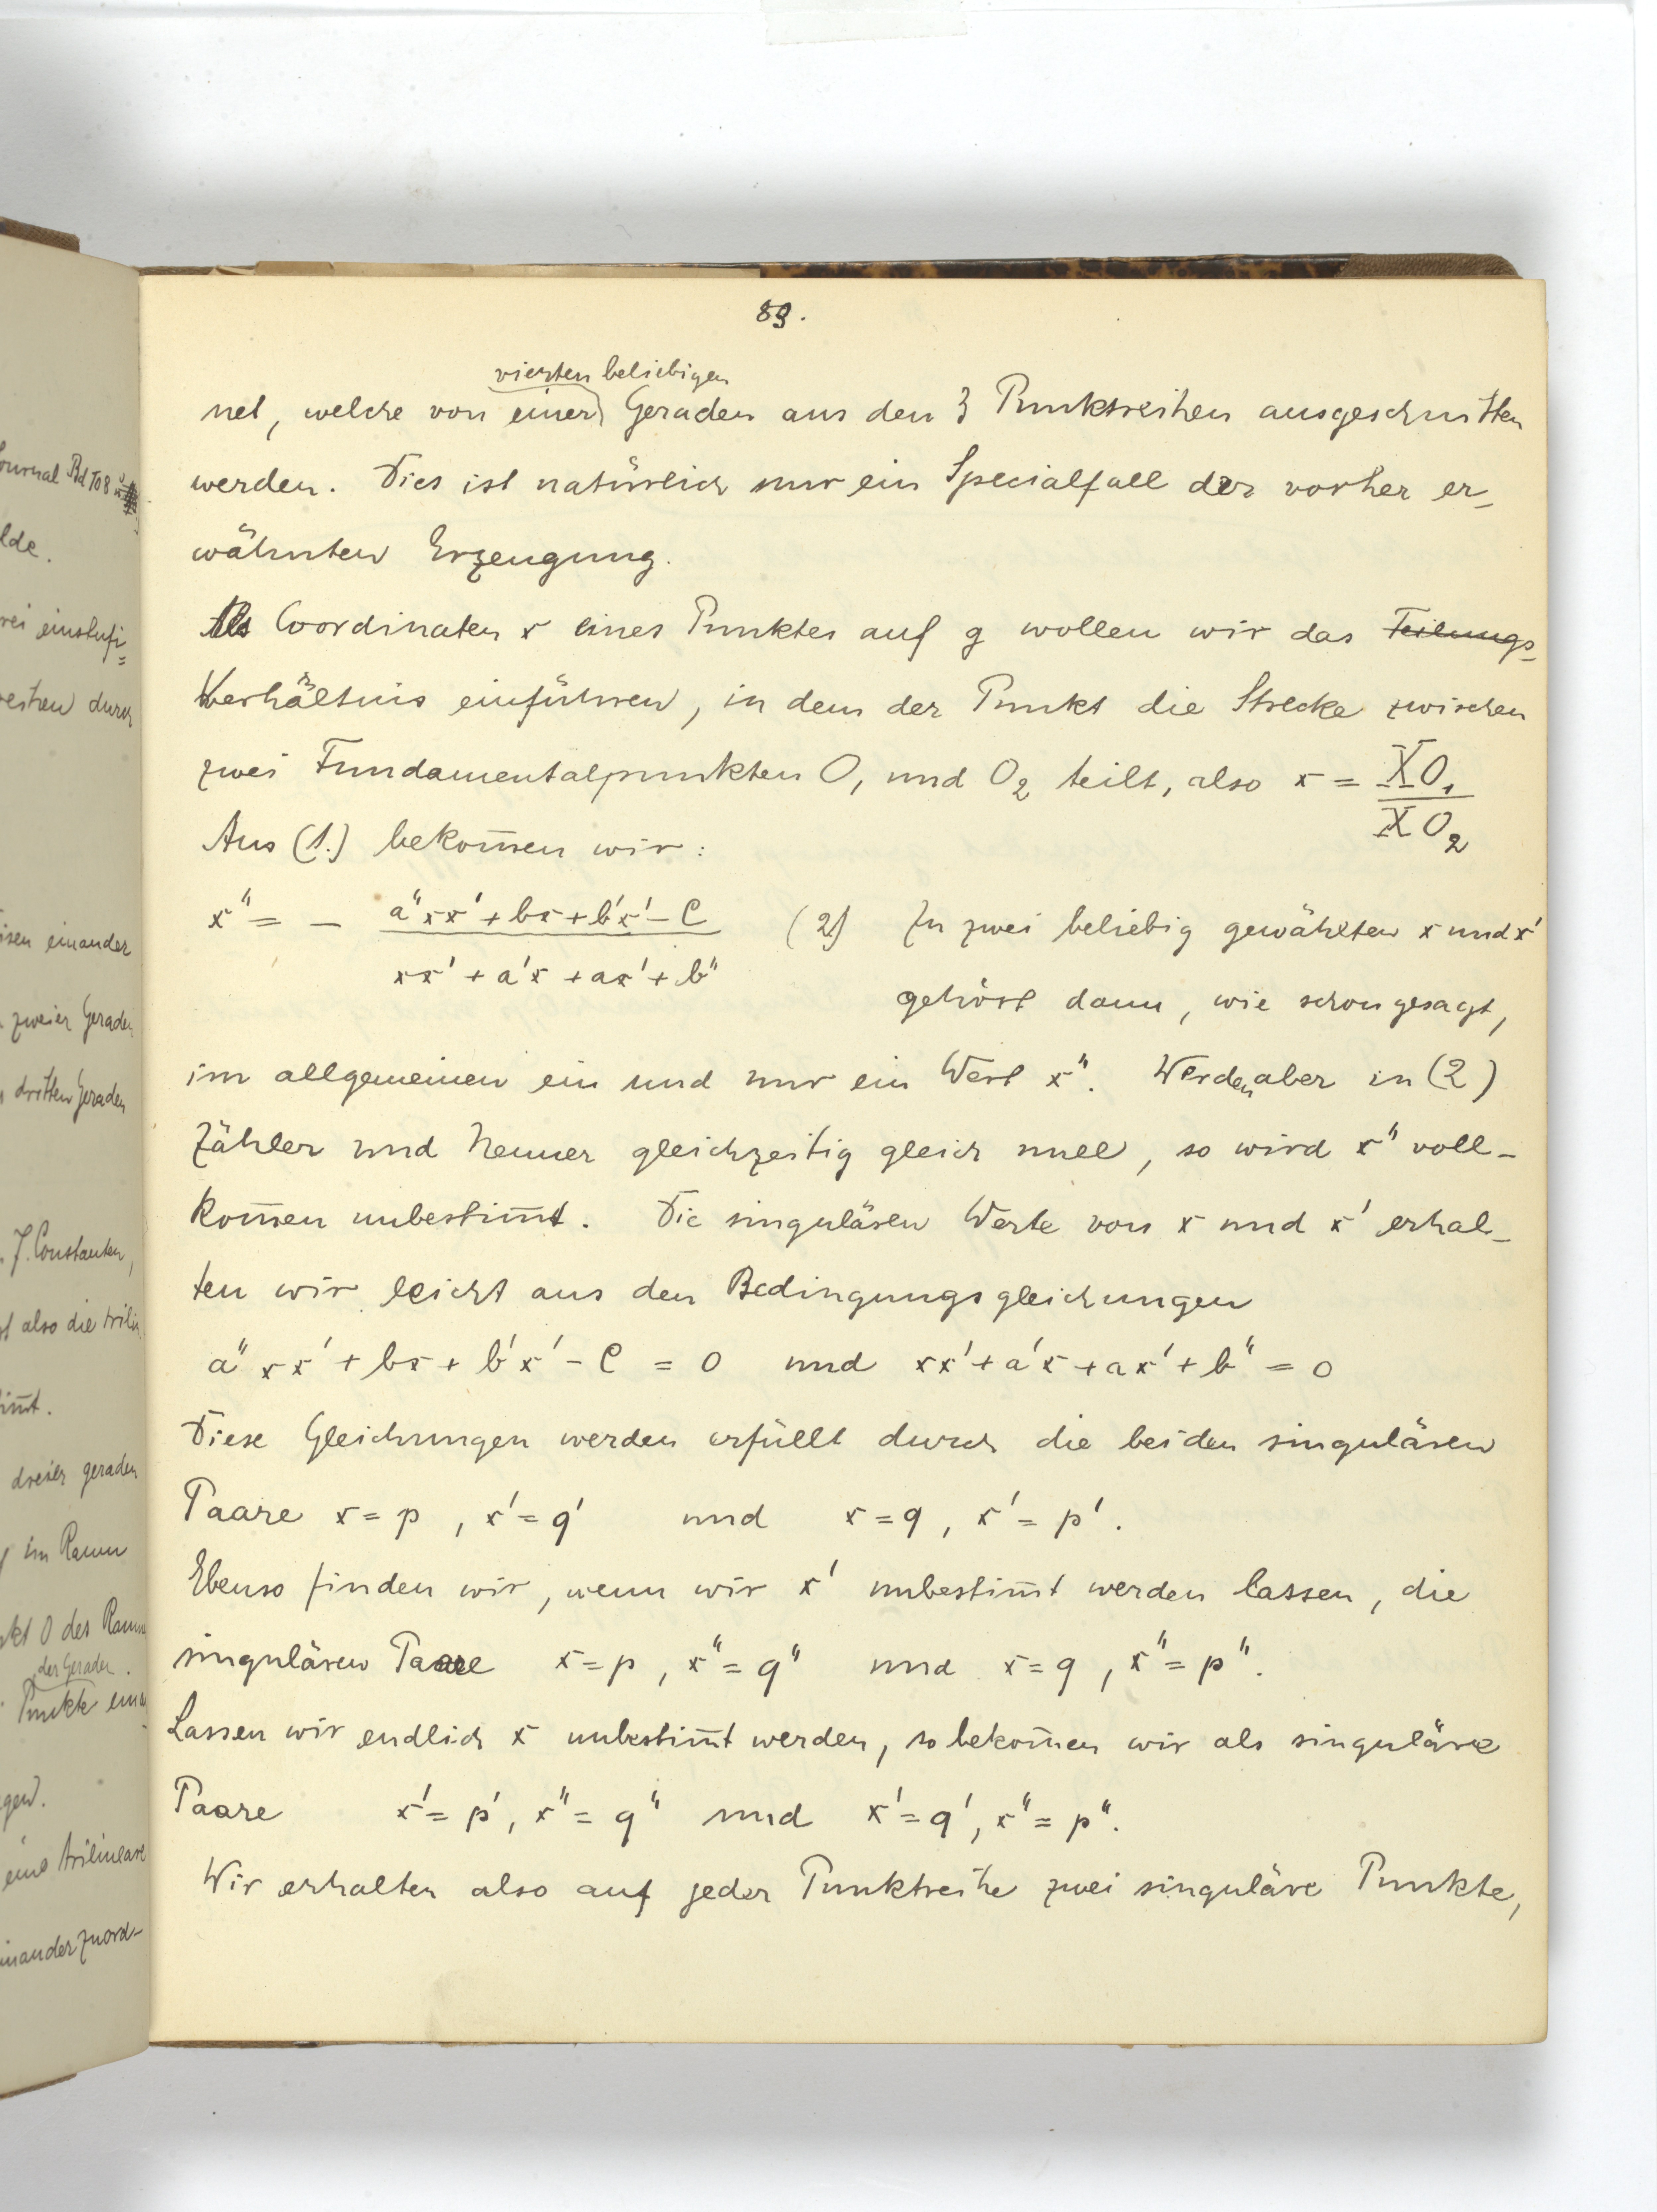 89.
vierten beliebigen
net, welche von einer Geraden aus den 3 Punktreihen ausgeschnitten
werden. Dies ist natürlich nur ein Specialfall der vorher er-
wähnten Erzeugung.
Als Coordinaten x eines Punktes auf g wollen wir das Teilungs-
Verhältnis einführen, in dem der Punkt die Strecke zwischen
zwei Fundamentalpunkten O₁ und O₂ teilt, also x = XO₁ / XO₂
Aus (1.) bekom̅en wir:
x" = - (a"xx' + bx + b'x' - C) / (xx' + a'x + ax' + b") (2) Zu zwei beliebig gewählten x und x'
gehört dann, wie schon gesagt,
im allgemeinen ein und nur ein Wert x". Werden aber in (2)
Zähler und Nenner gleichzeitig gleich null, so wird x" voll-
kom̅en unbestim̅t. Die singulären Werte von x und x' erhal-
ten wir leicht aus den Bedingungsgleichungen
a"xx' + bx + b'x' - C = 0 und xx' + a'x + ax' + b" = 0
Diese Gleichungen werden erfüllt durch die beiden singulären
Paare x = p , x' = q' und x = q , x' = p'.
Ebenso finden wir, wenn wir x' unbestim̅t werden lassen, die
singulären Paare x = p , x" = q" und x = q , x" = p".
Lassen wir endlich x unbestim̅t werden, so bekom̅en wir als singuläre
Paare x' = p', x" = q" und x' = q', x" = p".
Wir erhalten also auf jeder Punktreihe zwei singuläre Punkte,
Journal Bd 108
lde.
rei einstufi=
reihen durch
isen einander
zweier Geraden
dritten Geraden
7. Constanten,
also die trilin
im̅t.
dreier geraden
im Raum
kt O des Raum
der Geraden.
Punkte
gen.
eine trilineare
inander zuord-